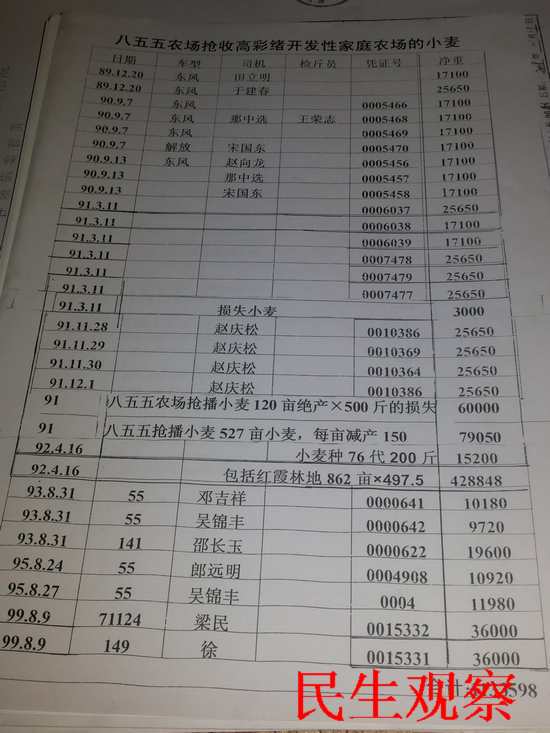 八五五农场抢收高彩绪开发性家庭农场的小麦
日期 车型 司机 检斤员 凭证号 净重
89.12.20 东风 田立明 17100
89.12.20 东风 于建春 25650
90.9.7 东风 0005466 17100
90.9.7 东风 那中选 王荣志 0005468 17100
90.9.7 东风 0005469 17100
90.9.7 解放 宋国东 0005470 17100
90.9.13 东风 赵向龙 0005456 17100
90.9.13 那中选 0005457 17100
宋国东 0005458 17100
91.3.11 0006037 25650
91.3.11 0006038 17100
91.3.11 0006039 17100
91.3.11 0007478 25650
91.3.11 0007479 25650
91.3.11 0007477 25650
91.3.11 损失小麦 3000
91.11.28 赵庆松 0010386 25650
91.11.29 赵庆松 0010369 25650
91.11.30 赵庆松 0010364 25650
91.12.1 赵庆松 0010386 25650
91 八五五农场抢播小麦120亩绝产×500斤的损失 60000
91 八五五抢播小麦527亩小麦，每亩减产150 79050
92.4.16 小麦种76代200斤 15200
92.4.16 包括红霞林地862亩×497.5 428848
93.8.31 55 邓吉祥 0000641 10180
93.8.31 55 吴锦丰 0000642 9720
93.8.31 141 邵长玉 0000622 19600
95.8.24 55 郎远明 0004908 10920
95.8.27 55 吴锦丰 0004 11980
99.8.9 71124 梁民 0015332 36000
99.8.9 149 徐 0015331 36000
合计 598
民生观察